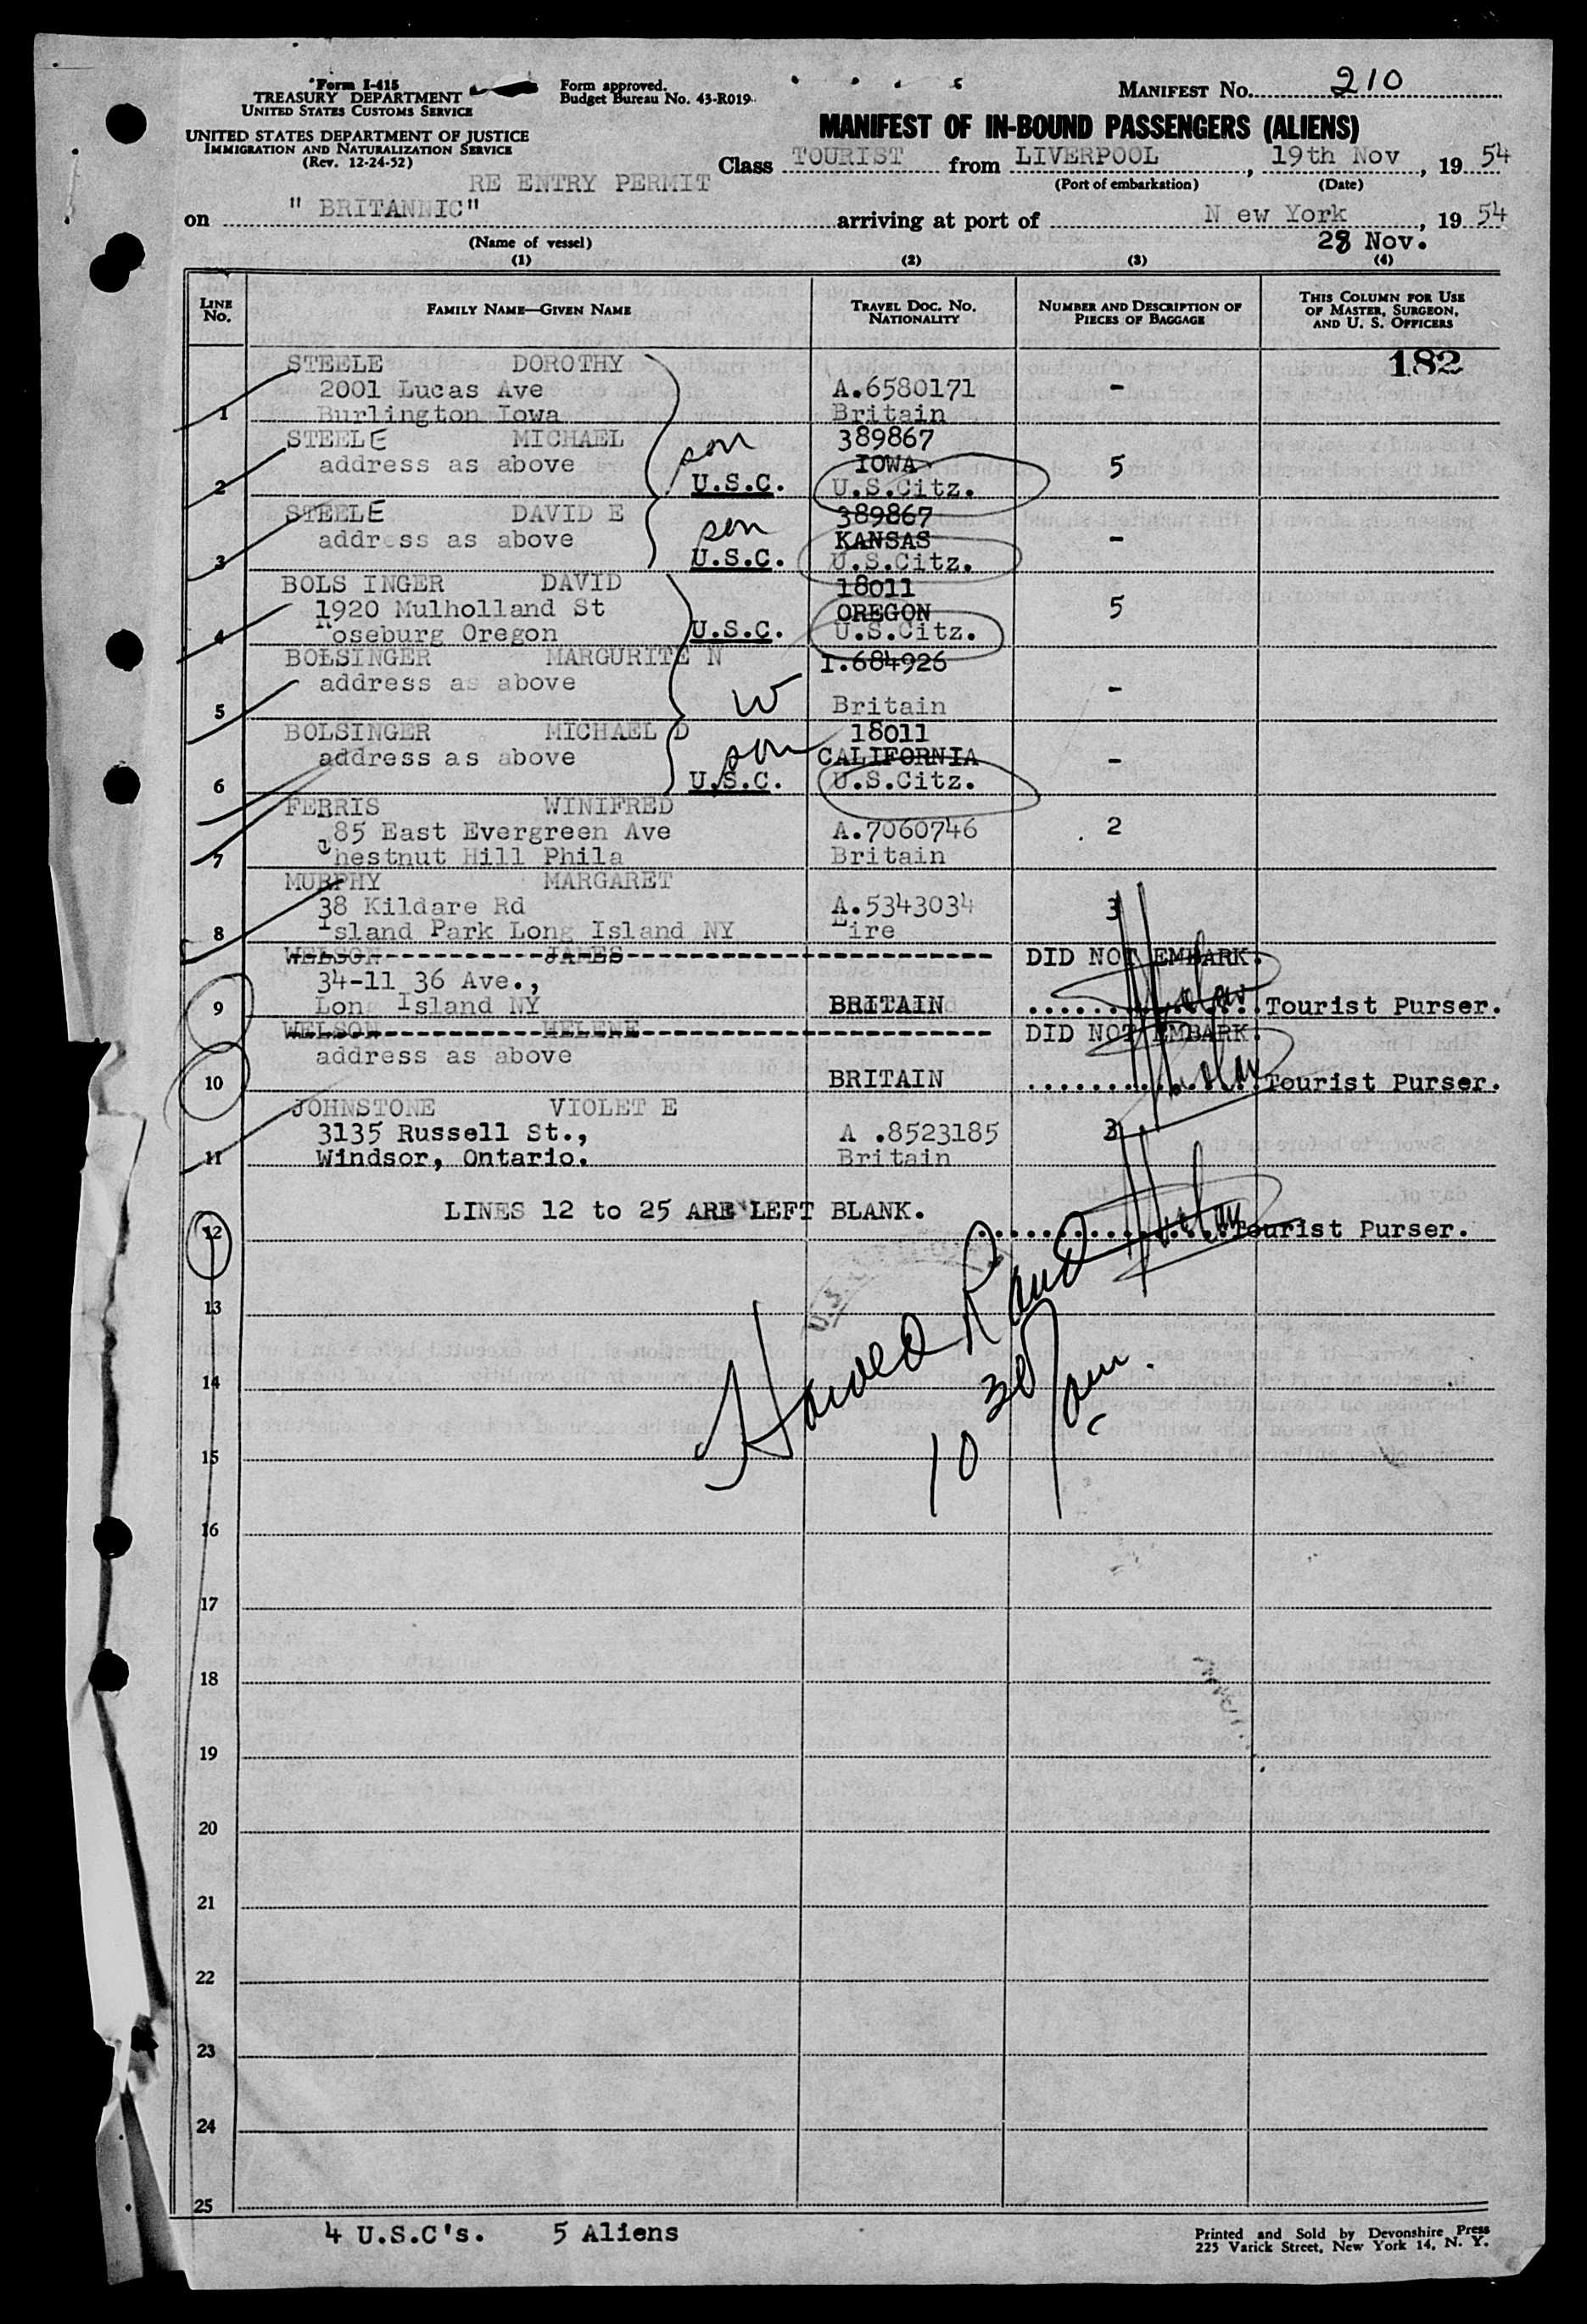 Form I-415
TREASURY DEPARTMENT
UNITED STATES CUSTOMS SERVICE
UNITED STATES DEPARTMENT OF JUSTICE
IMMIGRATION AND NATURALIZATION SERVICE
(Rev. 12-24-52)
Form approved.
Budget Bureau No. 43-R019
MANIFEST NO. 210
MANIFEST OF IN-BOUND PASSENGERS (ALIENS)
Class TOURIST from LIVERPOOL, 19th Nov, 19 54
(Port of embarkation) (Date)
RE ENTRY PERMIT
on " BRITANNIC" arriving at port of N ew York, 19 54
(Name of vessel) 28 Nov.
(1) (2) (3) (4)
LINE NO. FAMILY NAME—GIVEN NAME TRAVEL DOC. NO. NATIONALITY NUMBER AND DESCRIPTION OF PIECES OF BAGGAGE THIS COLUMN FOR USE OF MASTER, SURGEON, AND U. S. OFFICERS
STEELE DOROTHY 182
2001 Lucas Ave A.6580171 -
1 Burlington Iowa Britain
STEELE MICHAEL son 389867
address as above IOWA 5
2 U.S.C. U.S.Citz.
STEELE DAVID E son 389867
address as above KANSAS -
3 U.S.C. U.S.Citz.
BOLS INGER DAVID 18011
1920 Mulholland St OREGON 5
4 Roseburg Oregon U.S.C. U.S.Citz.
BOLSINGER MARGURITE N I.684926
address as above -
5 W Britain
BOLSINGER MICHAEL D son 18011
address as above CALIFORNIA -
6 U.S.C. U.S.Citz.
FERRIS WINIFRED
85 East Evergreen Ave A.7060746 2
7 Chestnut Hill Phila Britain
MURPHY MARGARET
38 Kildare Rd A.5343034 3
8 Island Park Long Island NY Eire
WELSON JAMES DID NOT EMBARK.
34-11 36 Ave.,
9 Long Island NY BRITAIN Tourist Purser.
WELSON HELENE DID NOT EMBARK.
address as above
10 BRITAIN Tourist Purser.
JOHNSTONE VIOLET E
3135 Russell St., A .8523185 3
11 Windsor, Ontario. Britain
LINES 12 to 25 ARE LEFT BLANK.
12 Tourist Purser.
13
Harold Rand
14
10 30 am.
15
16
17
18
19
20
21
22
23
24
25
4 U.S.C's. 5 Aliens
Printed and Sold by Devonshire Press
225 Varick Street, New York 14, N. Y.